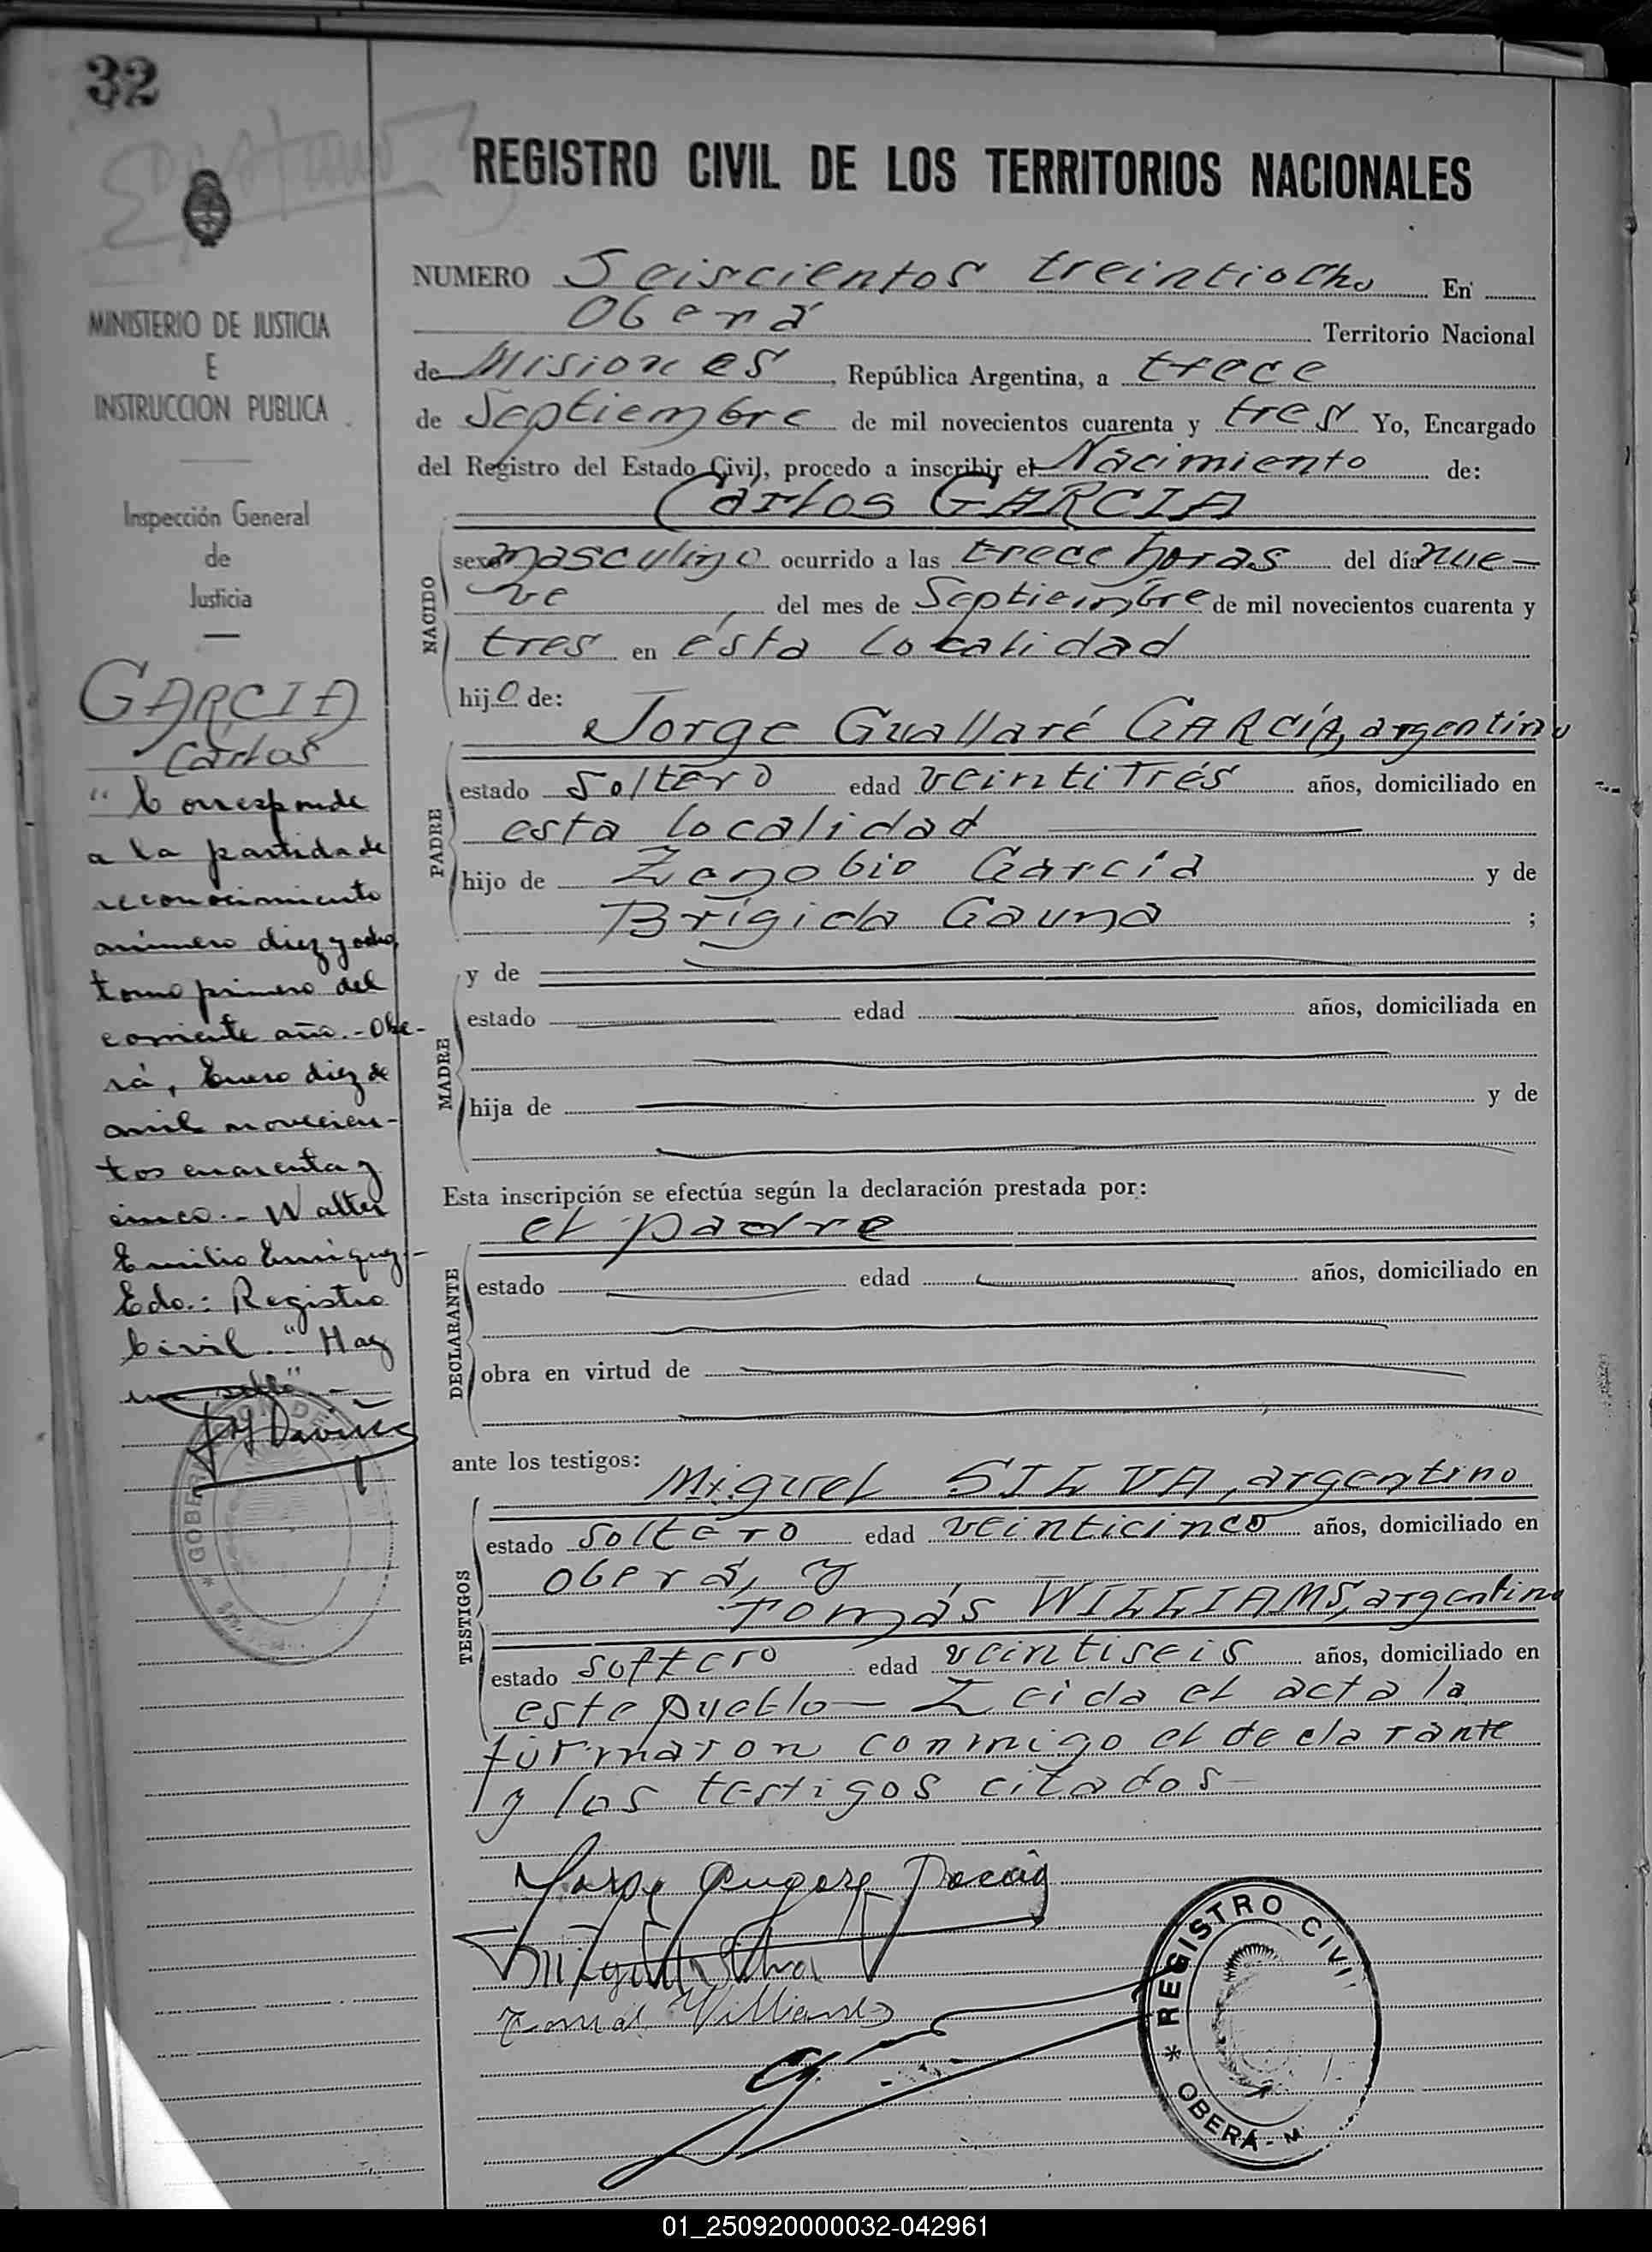 32
REGISTRO CIVIL DE LOS TERRITORIOS NACIONALES
MINISTERIO DE JUSTICIA
E
INSTRUCCION PUBLICA
Inspección General
de
Justicia
GARCIA
Carlos
"Corresponde
a la partida de
reconocimiento
número diez y ocho,
tomo primero del
corriente año.- Obe-
rá, Enero diez de
mil novecien-
tos cuarenta y
cinco.- Walter
Emilio Enriquez.-
Edo.: Registro
Civil." Hay
un sello".-
NUMERO Seiscientos treintiocho En
Oberá Territorio Nacional
de Misiones, República Argentina, a trece
de Septiembre de mil novecientos cuarenta y tres Yo, Encargado
del Registro del Estado Civil, procedo a inscribir el Nacimiento de:
Carlos GARCIA
NACIDO
sexo masculino ocurrido a las trece horas del día nue-
ve del mes de Septiembre de mil novecientos cuarenta y
tres en ésta localidad
hijo de:
PADRE
Jorge Guallaré GARCÍA, argentino
estado soltero edad veintitrés años, domiciliado en
esta localidad
hijo de Zenobio García y de
Brígida Gauna ;
MADRE
y de
estado edad años, domiciliada en
hija de y de
Esta inscripción se efectúa según la declaración prestada por:
DECLARANTE
el padre
estado edad años, domiciliado en
obra en virtud de
ante los testigos:
TESTIGOS
Miguel SILVA, argentino
estado soltero edad veinticinco años, domiciliado en
Oberá, y
Tomás WILLIAMS, argentino
estado soltero edad veintiseis años, domiciliado en
este pueblo— Leida el acta la
firmaron conmigo el declarante
y los testigos citados—
Miguel Silva
Tomás Williams
* REGISTRO CIVIL
OBERÁ - M
* GOBER
01_250920000032-042961